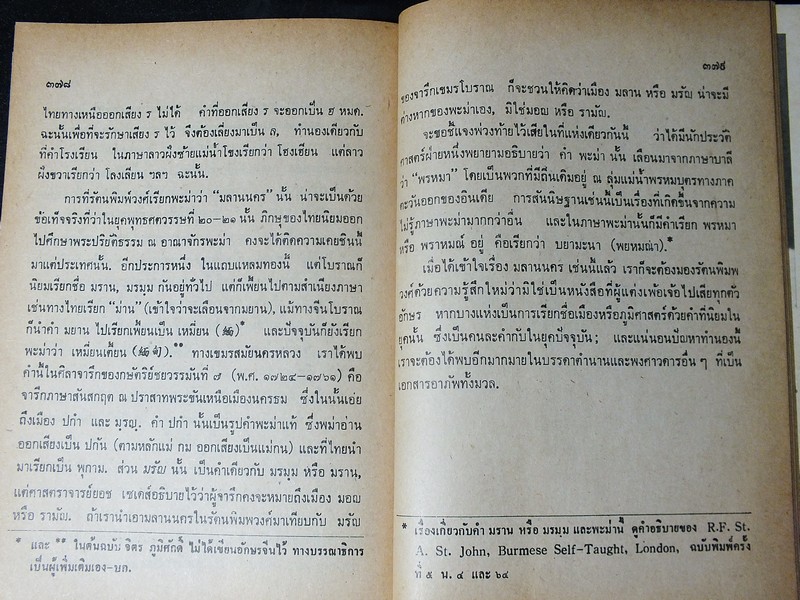 ๓๗๘
ไทยทางเหนือออกเสียง ร ไม่ได้ คำที่ออกเสียง ร จะออกเป็น ฮ หมด.
ฉะนั้นเพื่อที่จะรักษาเสียง ร ไว้ จึงต้องเลี่ยงมาเป็น ล, ทำนองเดียวกับ
ที่คำโรงเรียน ในภาษาลาวฝั่งซ้ายแม่น้ำโขงเรียกว่า โฮงเฮียน แต่ลาว
ฝั่งขวาเรียกว่า โลงเลียน ฯลฯ ฉะนั้น.
การที่รัตนพิมพ์วงศ์เรียกพะม่าว่า “มลานนคร” นั้น น่าจะเป็นด้วย
ข้อเท็จจริงที่ว่าในยุคพุทธศตวรรษที่ ๒๐-๒๑ นั้น ภิกษุของไทยนิยมออก
ไปศึกษาพระปริยัติธรรม ณ อาณาจักรพะม่า คงจะได้ติดความเคยชินนี้
มาแต่ประเทศนั้น. อีกประการหนึ่ง ในแถบแหลมทองนี้ แต่โบราณก็
นิยมเรียกชื่อ มราน, มรมุม กันอยู่ทั่วไป แต่ก็เพี้ยนไปตามสำเนียงภาษา
เช่นทางไทยเรียก “ม่าน” (เข้าใจว่าจะเลือนจากมยาน), แม้ทางจีนโบราณ
ก็นำคำ มยาน ไปเรียกเพี้ยนเป็น เหมี่ยน (緬)* และปัจจุบันก็ยังเรียก
พะม่าว่า เหมี่ยนเตี้ยน (緬甸).** ทางเขมรสมัยนครหลวง เราได้พบ
คำนี้ในศิลาจารึกของกษัตริย์ชัยวรรมันที่ ๗ (พ.ศ. ๑๗๒๔-๑๗๖๑) คือ
จารึกภาษาสันสกฤต ณ ปราสาทพระขันเหนือเมืองนครธม ซึ่งในนั้นเอ่ย
ถึงเมือง ปกำ และ มรญ. คำ ปกำ นั้นเป็นรูปคำพะม่าแท้ ซึ่งพม่าอ่าน
ออกเสียงเป็น ปกัน (ตามหลักแม่ กม ออกเสียงเป็นแม่กน) และที่ไทยนำ
มาเรียกเป็น พุกาม. ส่วน มรัญ นั้น เป็นคำเดียวกับ มรมุม หรือ มราน,
แต่ศาสตราจารย์ยอช เซเดส์อธิบายไว้ว่าผู้จารึกคงจะหมายถึงเมือง มอญ
หรือ รามัญ. ถ้าเรานำเอามลานนครในรัตนพิมพวงศ์มาเทียบกับ มรัญ
* และ ** ในต้นฉบับ จิตร ภูมิศักดิ์ ไม่ได้เขียนอักษรจีนไว้ ทางบรรณาธิการ
เป็นผู้เพิ่มเติมเอง-บก.
๓๗๙
ของจารึกเขมรโบราณ ก็จะชวนให้คิดว่าเมือง มลาน หรือ มรัญ น่าจะมี
ต่างหากของพะม่าเอง, มิใช่มอญ หรือ รามัญ.
จะขอชี้แจงพ่วงท้ายไว้เสียในที่แห่งเดียวกันนี้ ว่าได้มีนักประวัติ
ศาสตร์ฝ่ายหนึ่งพยายามอธิบายว่า คำ พะม่า นั้น เลือนมาจากภาษาบาลี
ว่า “พรหมา” โดยเป็นพวกที่มีถิ่นเดิมอยู่ ณ ลุ่มแม่น้ำพรหมบุตรทางภาค
ตะวันออกของอินเดีย การสันนิษฐานเช่นนี้เป็นเรื่องที่เกิดขึ้นจากความ
ไม่รู้ภาษาพะม่ามากกว่าอื่น และในภาษาพะม่านั้นก็มีคำเรียก พรหมา
หรือ พราหมณ์ อยู่ คือเรียกว่า บยามะนา (พยหมณ่า).*
เมื่อได้เข้าใจเรื่อง มลานนคร เช่นนี้แล้ว เราก็จะต้องมองรัตนพิมพ
วงศ์ด้วยความรู้สึกใหม่ว่ามิใช่เป็นหนังสือที่ผู้แต่งเพ้อเจ้อไปเสียทุกตัว
อักษร หากบางแห่งเป็นการเรียกชื่อเมืองหรือภูมิศาสตร์ด้วยคำที่นิยมใน
ยุคนั้น ซึ่งเป็นคนละคำกับในยุคปัจจุบัน; และแน่นอนปัญหาทำนองนี้
เราจะต้องได้พบอีกมากมายในบรรดาตำนานและพงศาวดารอื่น ๆ ที่เป็น
เอกสารอาภัพทั้งมวล.
* เรื่องเกี่ยวกับคำ มราน หรือ มรมุม และพะม่านี้ ดูคำอธิบายของ R.F. St.
A. St. John, Burmese Self-Taught, London, ฉบับพิมพ์ครั้ง
ที่ ๕ น. ๔ และ ๖๔